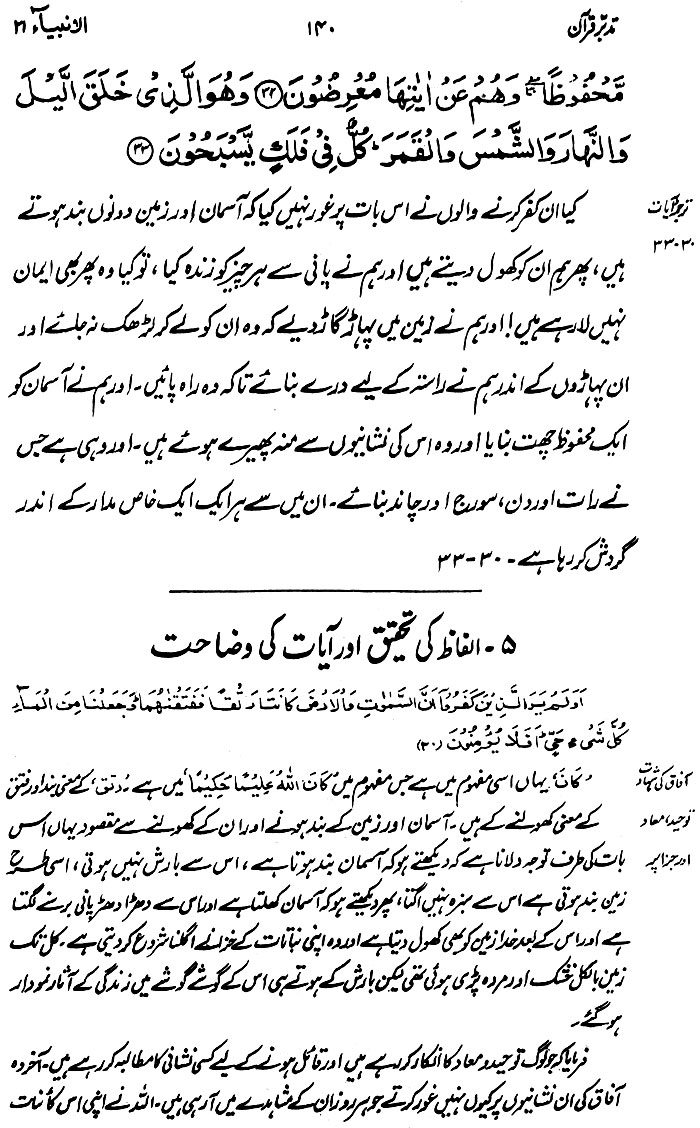 تدبر قرآن ۱۴۰ الانبیآء ۲۱
مَّحْفُوظًا ۖ وَّهُمْ عَنْ اٰيٰتِهَا مُعْرِضُوْنَ ﴿۳۲﴾ وَهُوَ الَّذِيْ خَلَقَ الَّيْلَ
وَالنَّهَارَ وَالشَّمْسَ وَالْقَمَرَ ؕ كُلٌّ فِيْ فَلَكٍ يَّسْبَحُوْنَ ﴿۳۳﴾
ترجمۂ آیات
۳۰-۳۳
کیا ان کفر کرنے والوں نے اس بات پر غور نہیں کیا کہ آسمان اور زمین دونوں بند ہوتے
ہیں، پھر ہم ان کو کھول دیتے ہیں اور ہم نے پانی سے ہر چیز کو زندہ کیا، تو کیا وہ پھر بھی ایمان
نہیں لا رہے ہیں! اور ہم نے زمین میں پہاڑ گاڑ دیے کہ وہ ان کو لے کر لڑھک نہ جائے اور
ان پہاڑوں کے اندر ہم نے راستہ کے لیے درے بنائے تاکہ وہ راہ پائیں۔ اور ہم نے آسمان کو
ایک محفوظ چھت بنایا اور وہ اس کی نشانیوں سے منہ پھیرے ہوئے ہیں۔ اور وہی ہے جس
نے رات اور دن، سورج اور چاند بنائے۔ ان میں سے ہر ایک ایک خاص مدار کے اندر
گردش کر رہا ہے۔ ۳۰-۳۳
۵۔ الفاظ کی تحقیق اور آیات کی وضاحت
اَوَلَمْ يَرَ الَّذِيْنَ كَفَرُوْٓا اَنَّ السَّمٰوٰتِ وَالْاَرْضَ كَانَتَا رَتْقًا فَفَتَقْنٰهُمَا ؕ وَجَعَلْنَا مِنَ الْمَآءِ
كُلَّ شَيْءٍ حَيٍّ ؕ اَفَلَا يُؤْمِنُوْنَ (۳۰)
آفاق کی شہادت
توحید، معاد
اور جزا پر
'كَانَ' یہاں اسی مفہوم میں ہے جس مفہوم میں 'كَانَ اللّٰهُ عَلِيْمًا حَكِيْمًا' میں ہے۔ 'رتق' کے معنی بند اور فتق
کے معنی کھولنے کے ہیں۔ آسمان اور زمین کے بند ہونے اور ان کے کھولنے سے مقصود یہاں اس
بات کی طرف توجہ دلانا ہے کہ دیکھتے ہو کہ آسمان بند ہوتا ہے، اس سے بارش نہیں ہوتی، اسی طرح
زمین بند ہوتی ہے اس سے سبزہ نہیں اگتا، پھر دیکھتے ہو کہ آسمان کھلتا ہے اور اس سے دھڑا دھڑ پانی برسنے لگتا
ہے اور اس کے بعد خدا زمین کو بھی کھول دیتا ہے اور وہ اپنی نباتات کے خزانے اگلنا شروع کر دیتی ہے۔ کل تک
زمین بالکل خشک اور مردہ پڑی ہوئی تھی لیکن بارش کے ہوتے ہی اس کے گوشے گوشے میں زندگی کے آثار نمودار
ہو گئے۔
فرمایا کہ جو لوگ توحید و معاد کا انکار کر رہے ہیں اور قائل ہونے کے لیے کسی نشانی کا مطالبہ کر رہے ہیں۔ آخر وہ
آفاق کی ان نشانیوں پر کیوں نہیں غور کرتے جو ہر روز ان کے مشاہدے میں آ رہی ہیں۔ اللہ نے اپنی اس کائنات